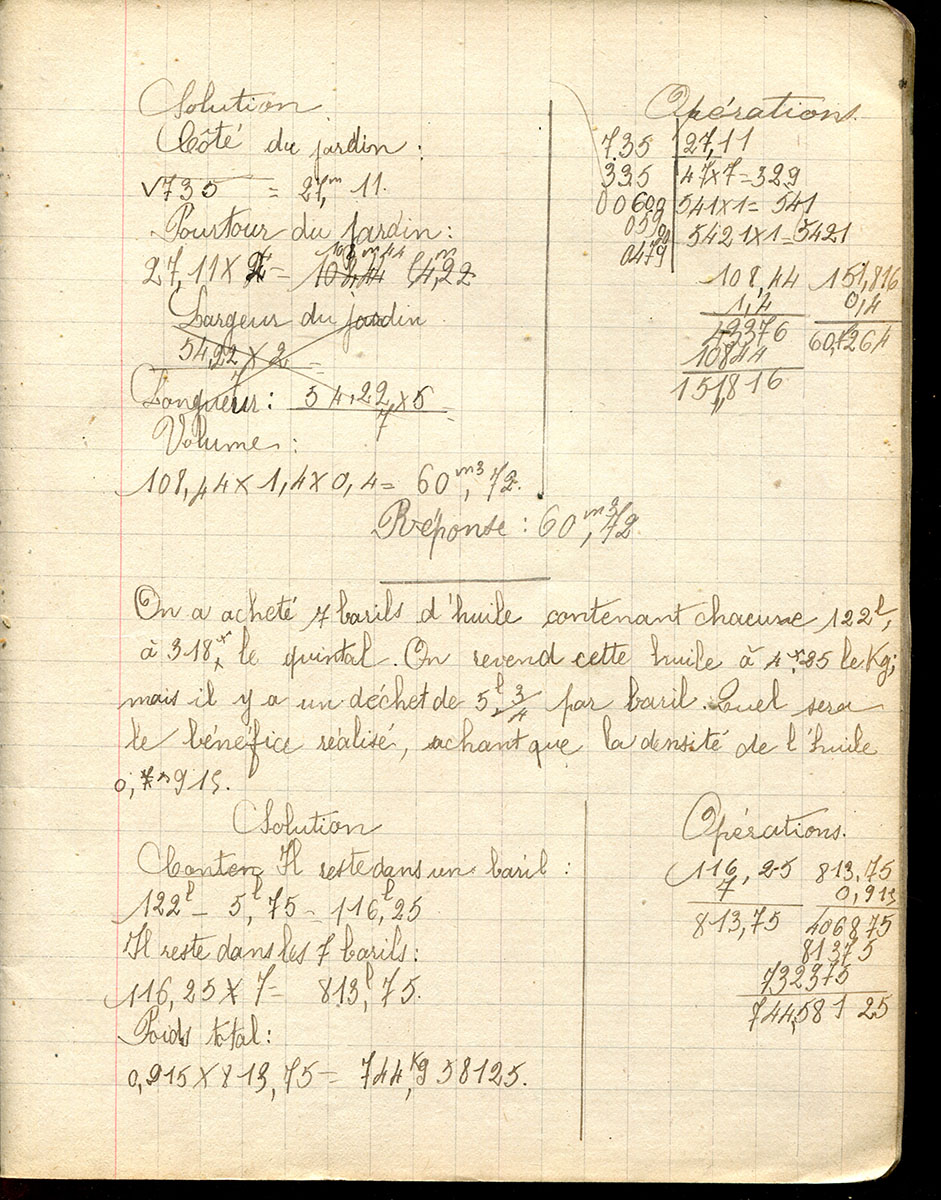 Solution
Côté du jardin :
√735 = 27,m 11.
Pourtour du jardin :
27,11 × 4 = 108,m44
Largeur du jardin
54,22 × 2 =
7
Longueur : 54,22 × 5 =
7
Volume :
108,44 × 1,4 × 0,4 = 60,m3 72.
Réponse : 60,m3 72
Opérations.
7.35 27,11
335 47×7=329
0060,0 541×1= 541
059 5421×1=5421
0479
108,44
1,4
43376
10844
151,816
151,816
0,4
60,7264
On a acheté 7 barils d'huile contenant chacune 122l,
à 318,x le quintal. On revend cette huile à 4,x85 le Kg;
mais il y a un déchet de 5,l 3/4 par baril. Quel sera
le bénéfice réalisé, achant que la densité de l'huile
0,915.
Solution
Conten Il reste dans un baril :
122l - 5,l75 - 116,l25
Il reste dans les 7 barils :
116,25 × 7 = 813,l75.
Poids total :
0,915 × 813,75 = 744,Kg 58125.
Opérations.
116,25
7
813,75
813,75
0,915
406875
81375
732375
744,58125